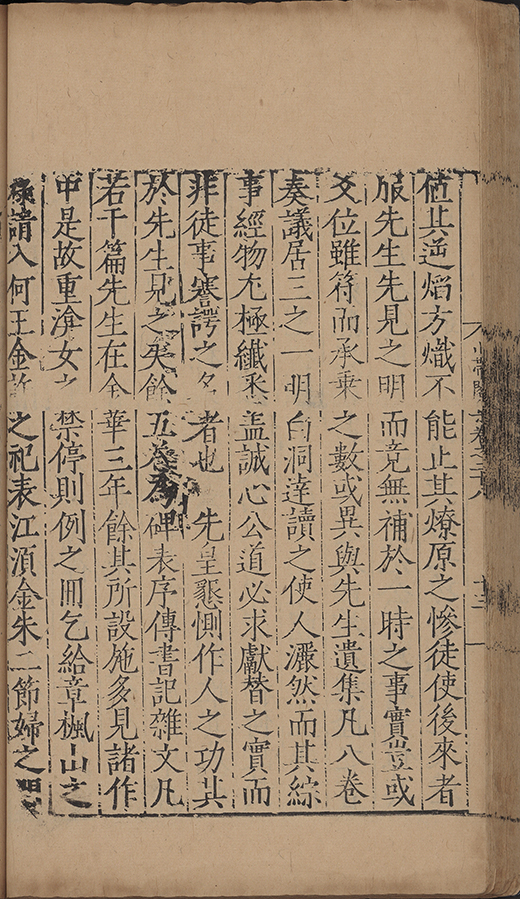 值其逆焰方熾不能止其燎原之慘徒使後來者
服先生先見之明而竟無補於一時之事實豈或
爻位雖符而承乗之數或異與先生遺集凡八卷
奏議居三之一明白洞達讀之使人灑然而其綜
事經物尤極纖悉盖誠心公道必求獻替之實而
非徒事謇諤之名者也　先皇懇惻作人之功其
於先生見之矣餘五卷碑表序傳書記雜文凡
若干篇先生在金華三年餘其所設施多見諸作
中是故重渰女之禁停則例之冊乞給章楓山之
請入何王金之祀表江湏金朱二節婦之
卷之二十八
十二